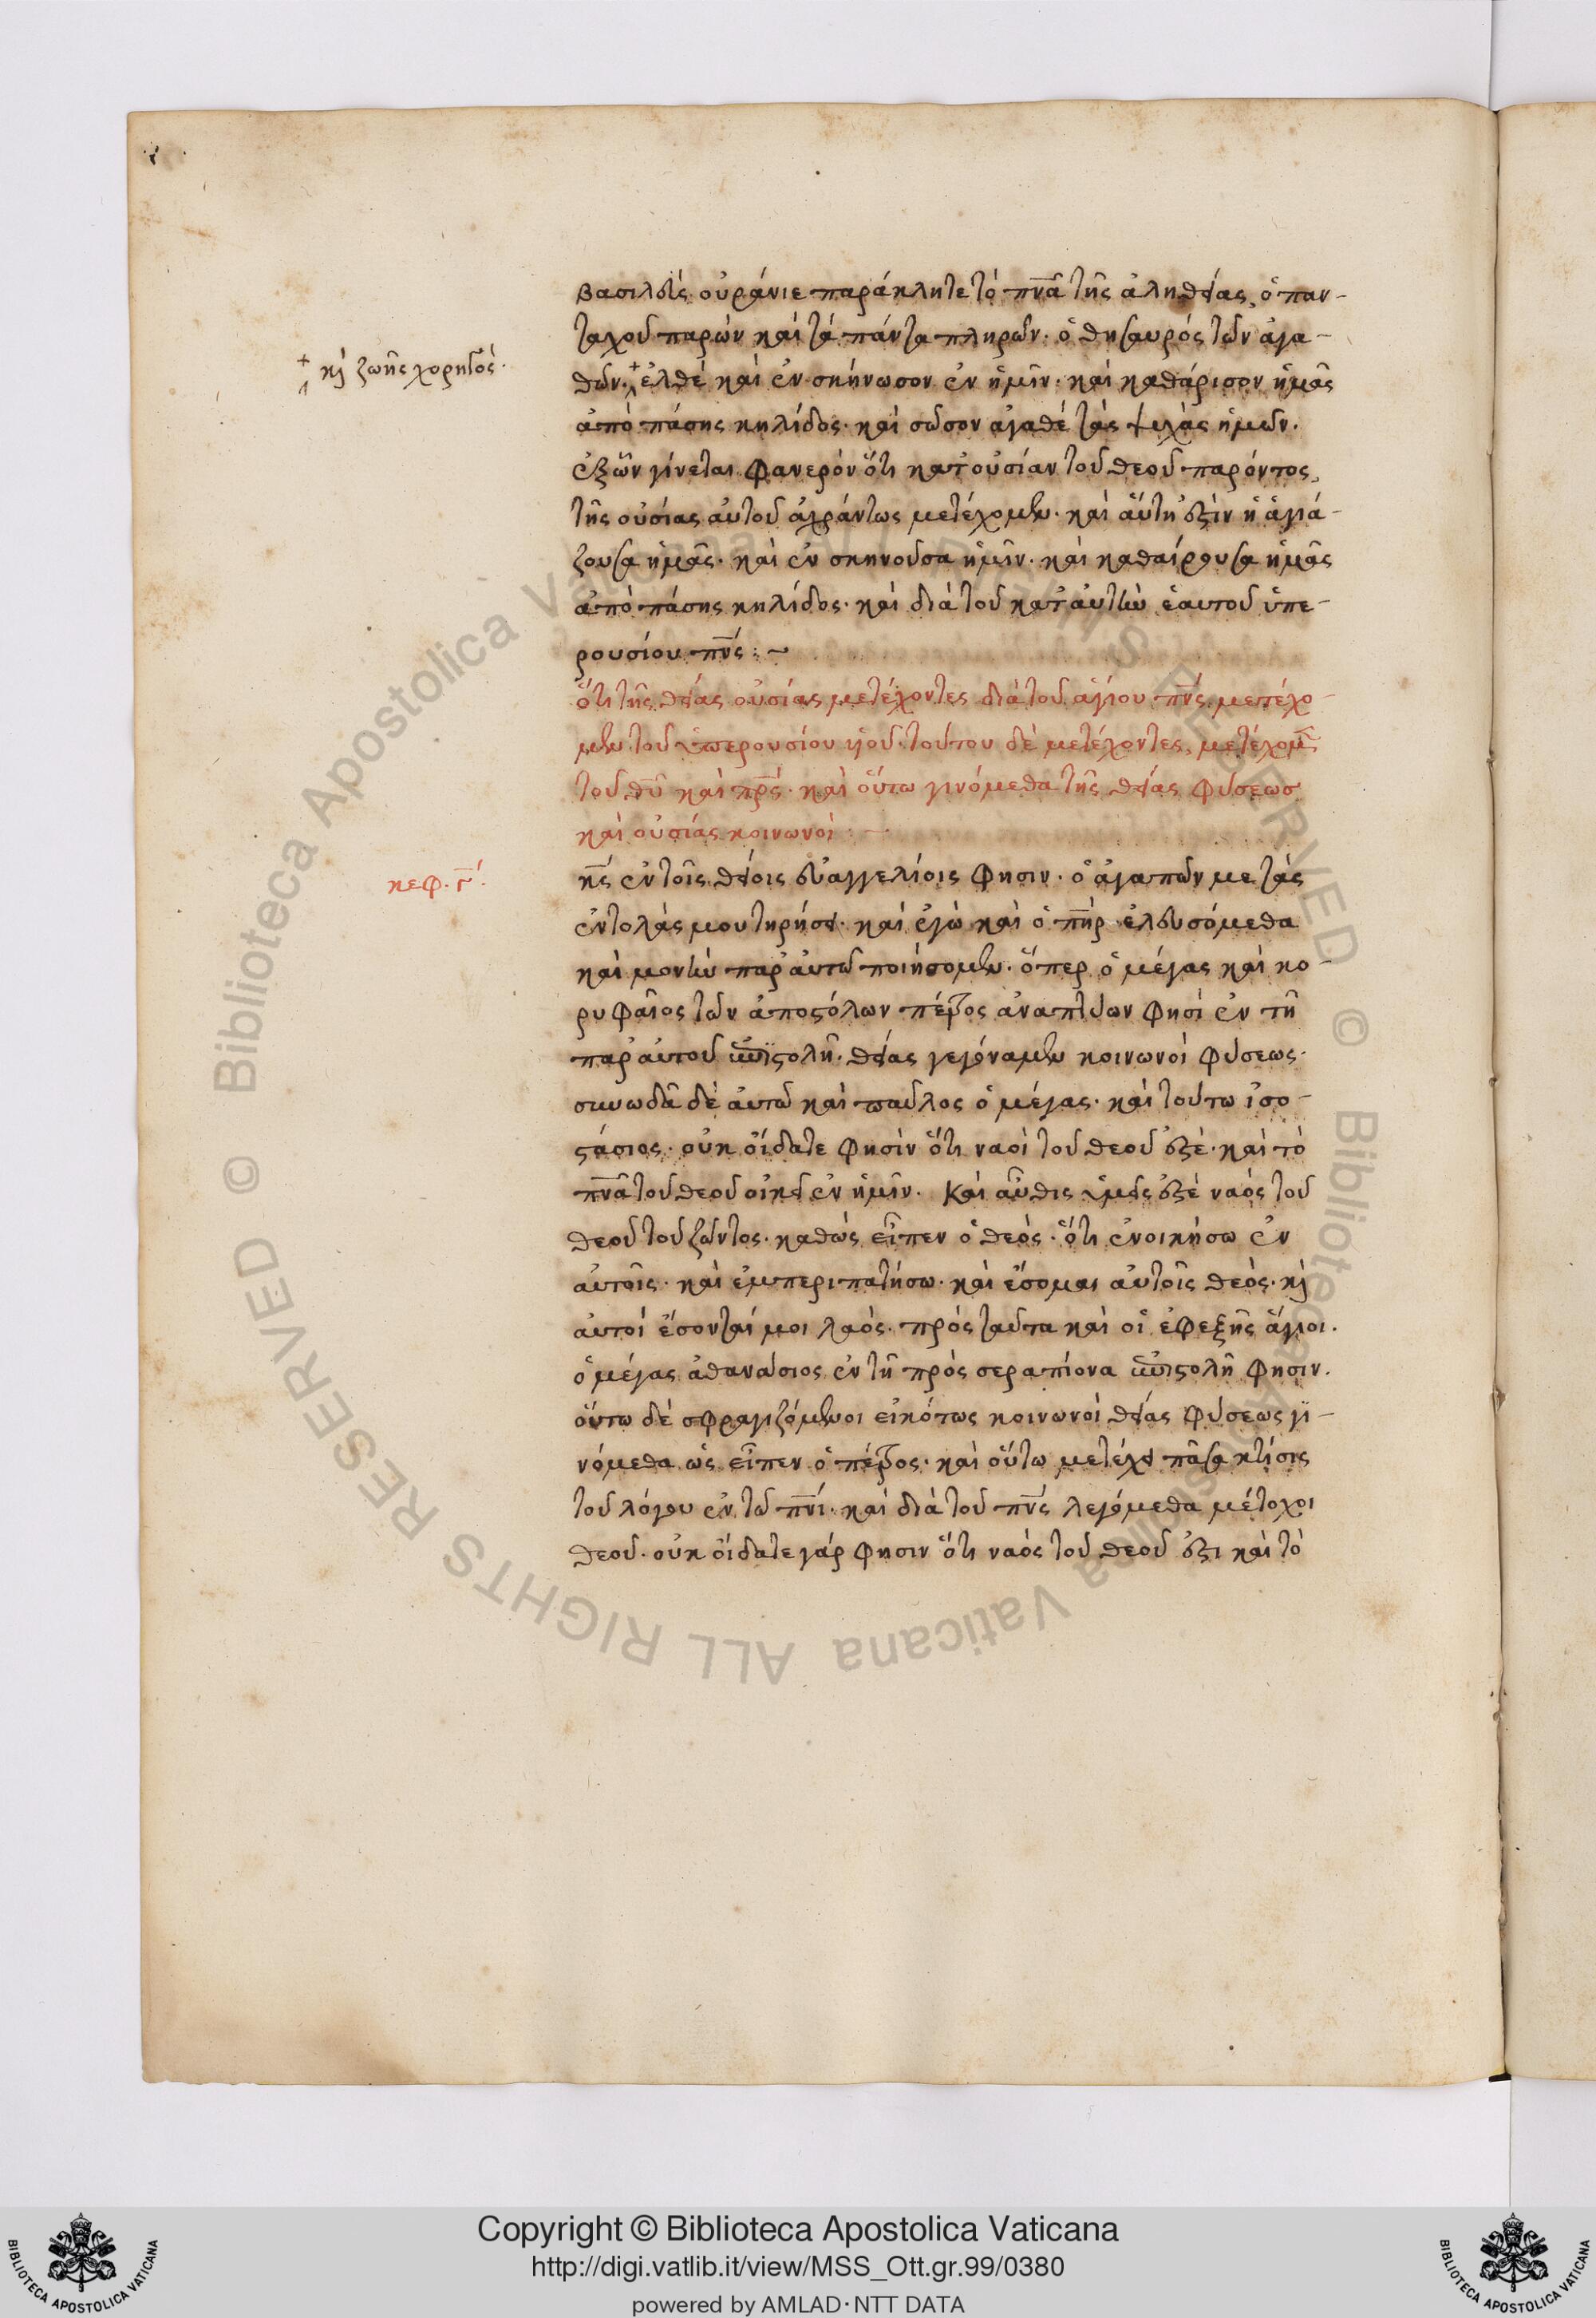 βασιλεὺς οὐράνιε παράκλητε τὸ πν̅α τῆς ἀληθείας, ὁ παν-
ταχοῦ παρὼν καὶ τὰ πάντα πληρῶν· ὁ θησαυρὸς τῶν ἀγα-
+ κ̀ ζωῆς χορηγός·
θῶν·+ ἐλθὲ καὶ ἐν σκήνωσον ἐν ἡμῖν· καὶ καθάρισον ἡμᾶς
ἀπὸ πάσης κηλίδος· καὶ σῶσον ἀγαθὲ τὰς ψυχὰς ἡμῶν.
ἐξ ὧν γίνεται φανερὸν ὅτι κατ' οὐσίαν τοῦ θεοῦ παρόντος,
τῆς οὐσίας αὐτοῦ ἀχράντως μετέχομεν· καὶ αὕτη ἐστὶν ἡ ἁγιά-
ζουσα ἡμᾶς· καὶ ἐν σκηνοῦσα ἡμῖν· καὶ καθαίρουσα ἡμᾶς
ἀπὸ πάσης κηλίδος· καὶ διὰ τοῦ κατ' αὐτὴν ἑαυτοῦ ὑπε-
ρουσίου πν̅ς :~
ὅτι τῆς θείας οὐσίας μετέχοντες διὰ τοῦ ἁγίου πν̅ς μετέχο-
μεν τοῦ ὑπερουσίου υἱοῦ· τούτου δὲ μετέχοντες, μετέχομεν
τοῦ θ̅υ καὶ πρ̅ς· καὶ οὕτω γινόμεθα τῆς θείας φύσεως
καὶ οὐσίας κοινωνοί :—
κεφ. γ̅.
κ̅ς ἐν τοῖς θείοις εὐαγγελίοις φησιν· ὁ ἀγαπῶν με τὰς
ἐντολάς μου τηρήσει· καὶ ἐγὼ καὶ ὁ π̅ηρ ἐλευσόμεθα
καὶ μονὴν παρ' αὐτῶ ποιήσομεν· ὅπερ ὁ μέγας καὶ κο-
ρυφαῖος τῶν ἀποστόλων πέτρος ἀναπτύων φησὶ ἐν τῆ
παρ' αὐτοῦ ἐπιστολῆ· θείας γεγόναμεν κοινωνοὶ φύσεως·
συνωδᾶ δὲ αὐτῶ καὶ παῦλος ὁ μέγας· καὶ τούτω ἰσο-
στάσιος· οὐκ οἴδατε φησὶν ὅτι ναοὶ τοῦ θεοῦ ἐστὲ· καὶ τὸ
πν̅α τοῦ θεοῦ οἰκεῖ ἐν ἡμῖν. Καὶ αὖθις ὑμεῖς ἐστὲ ναὸς τοῦ
θεοῦ τοῦ ζῶντος· καθὼς εἶπεν ὁ θεὸς· ὅτι ἐνοικήσω ἐν
αὐτοῖς· καὶ ἐμπεριπατήσω· καὶ ἔσομαι αὐτοῖς θεὸς· κ̀
αὐτοὶ ἔσονταί μοι λαὸς· πρὸς ταῦτα καὶ οἱ ἐφεξῆς ἅγιοι.
ὁ μέγας ἀθανάσιος ἐν τῆ πρὸς σεραπίονα ἐπιστολῆ φησιν.
οὕτω δὲ σφραγιζόμενοι εἰκότως κοινωνοὶ θείας φύσεως γϊ-
νόμεθα ὡς εἶπεν ὁ πέτρος· καὶ οὕτω μετέχει πᾶσα κτίσις
τοῦ λόγου ἐν τῶ πν̅ι· καὶ διὰ τοῦ πν̅ς λεγόμεθα μέτοχοι
θεοῦ· οὐκ οἴδατε γάρ φησιν ὅτι ναὸς τοῦ θεοῦ ἐστι καὶ τὸ
© Biblioteca Apostolica Vaticana ALL RIGHTS RESERVED
© Biblioteca Apostolica Vaticana ALL RIGHTS RESERVED
Copyright © Biblioteca Apostolica Vaticana
http://digi.vatlib.it/view/MSS_Ott.gr.99/0380
powered by AMLAD·NTT DATA
BIBLIOTECA APOSTOLICA VATICANA
BIBLIOTECA APOSTOLICA VATICANA